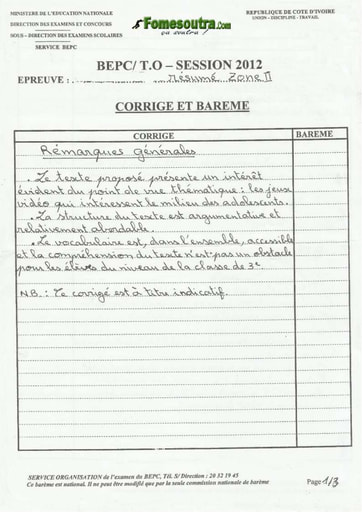 MINISTERE DE L'EDUCATION NATIONALE
DIRECTION DES EXAMENS ET CONCOURS
SOUS – DIRECTION DES EXAMENS SCOLAIRES
SERVICE BEPC
Fomesoutra.com
ça soutra !
REPUBLIQUE DE COTE D'IVOIRE
UNION – DISCIPLINE - TRAVAIL
BEPC/ T.O – SESSION 2012
EPREUVE : Résumé Zone II
CORRIGE ET BAREME
CORRIGE BAREME
Rémarques générales
. Le texte proposé présente un intérêt
évident du point de vue thématique : les jeux
vidéo qui intéressent le milieu des adolescents.
. La structure du texte est argumentative et
relativement abordable.
. Le vocabulaire est, dans l'ensemble, accessible
et la compréhension du texte n'est pas un obstacle
pour les élèves du niveau de la classe de 3e
N.B. : Le corrigé est à titre indicatif.
SERVICE ORGANISATION de l'examen du BEPC, Tél. S/ Direction : 20 32 19 45
Ce barème est national. Il ne peut être modifié que par la seule commission nationale de barème
Page 1/3